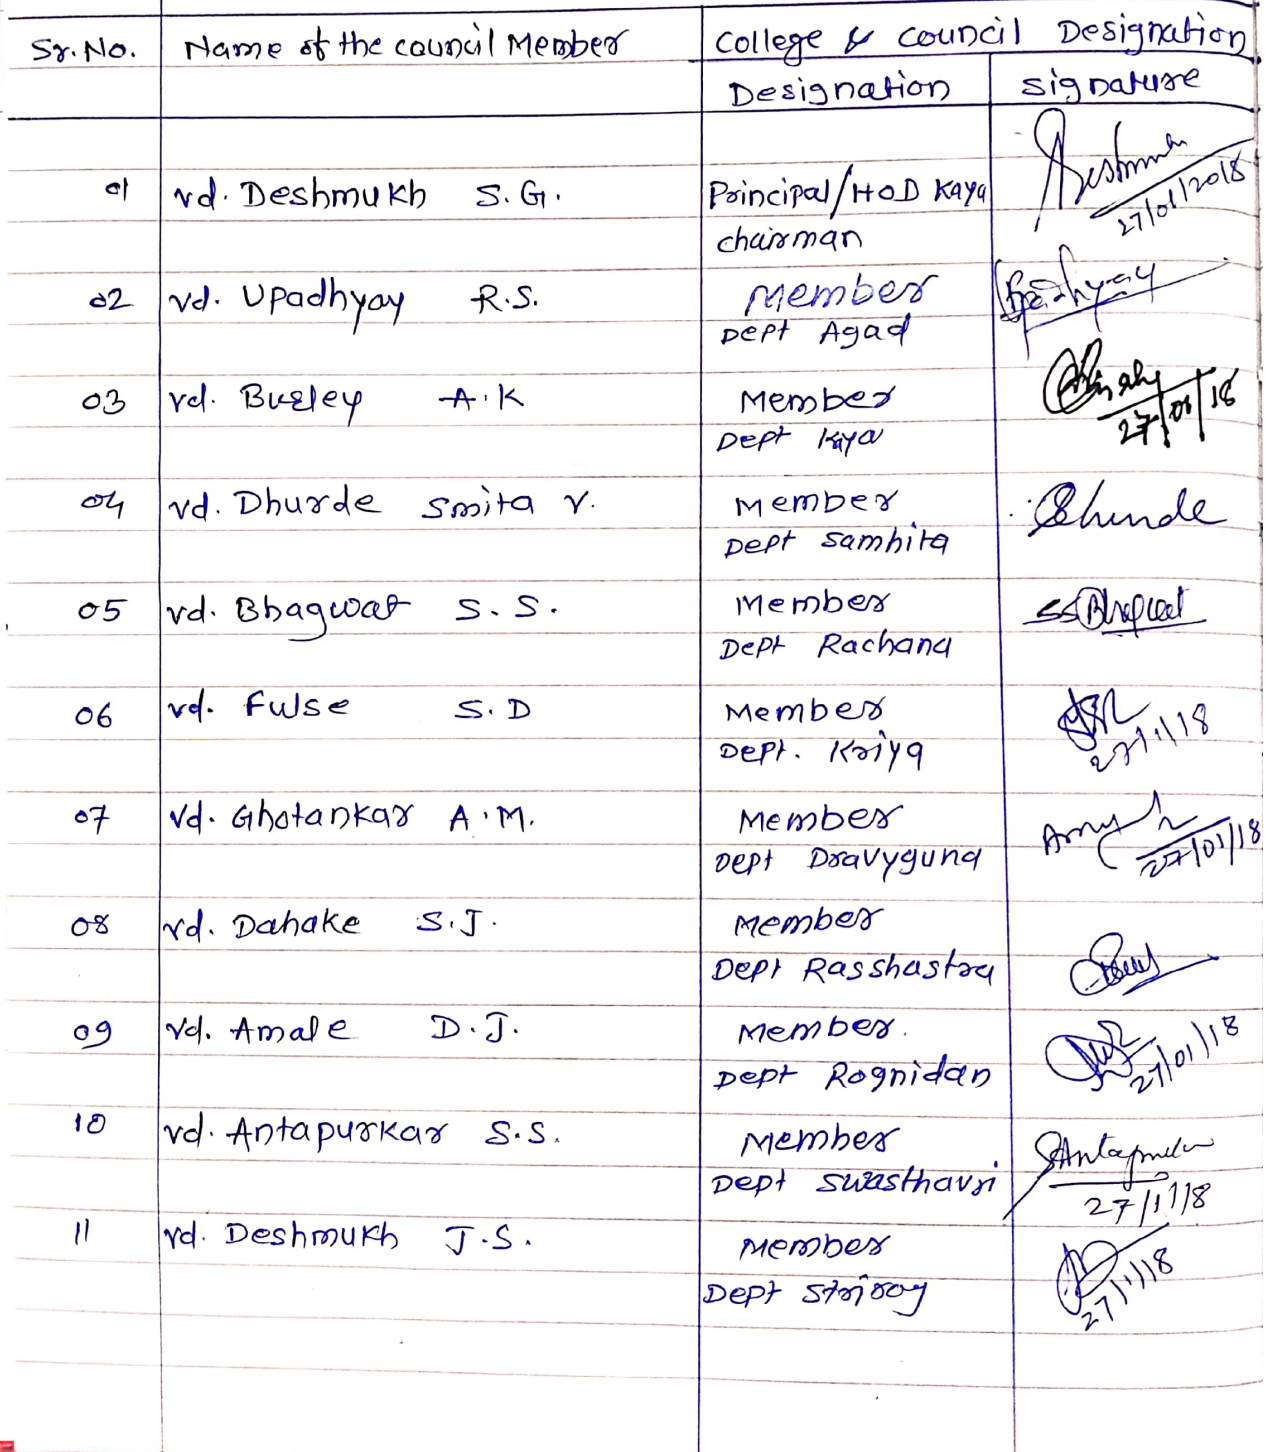 Sr. No. Name of the council Member College & council Designation
Designation signature
01 vd. Deshmukh S.G. Principal/HOD Kaya
chairman
27/01/2018
02 vd. Upadhyay R.S. Member
Dept Agad
03 vd. Burley A.K Member
Dept Kaya
27/01/18
04 vd. Dhurde Smita V. Member
Dept Samhita
05 vd. Bhagwat S.S. Member SSBhagwat
Dept Rachana
06 vd. Fulse S.D Member
Dept. Kriya 27/1/18
07 vd. Ghotankar A.M. Member
Dept Dravyguna 27/01/18
08 vd. Dahake S.J. Member
Dept Rasshastra
09 vd. Amale D.J. Member.
Dept Rognidan 27/01/18
10 vd. Antapurkar S.S. Member
Dept swasthavri
27/1/18
11 vd. Deshmukh J.S. Member
Dept Strirog 27/1/18